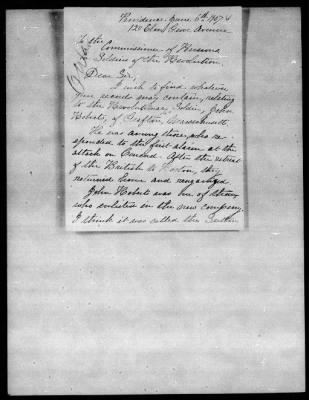 Providence June 5th 1907
120 Elm Grove Avenue
To the
Commissioner of Pensions
Soldiers of the Revolution.
Dear Sir,
I wish to find whatever
your records may contain, relating
to the Revolutionary Soldier, John
Roberts, of Grafton, Massachusetts.
He was among those, who re-
sponded to the first alarm at the
attack on Concord. After the retreat
of the British to Boston, they
returned home and reorganized.
John Roberts was one of many
who enlisted in the new company,
I think it was called the Grafton